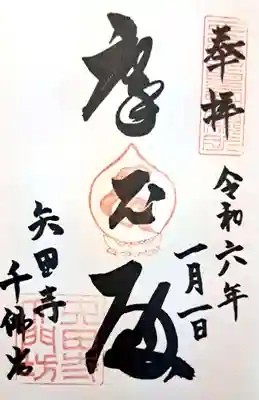 奉拝
令和六年
一月一日
摩尼殿
矢田寺
千佛堂